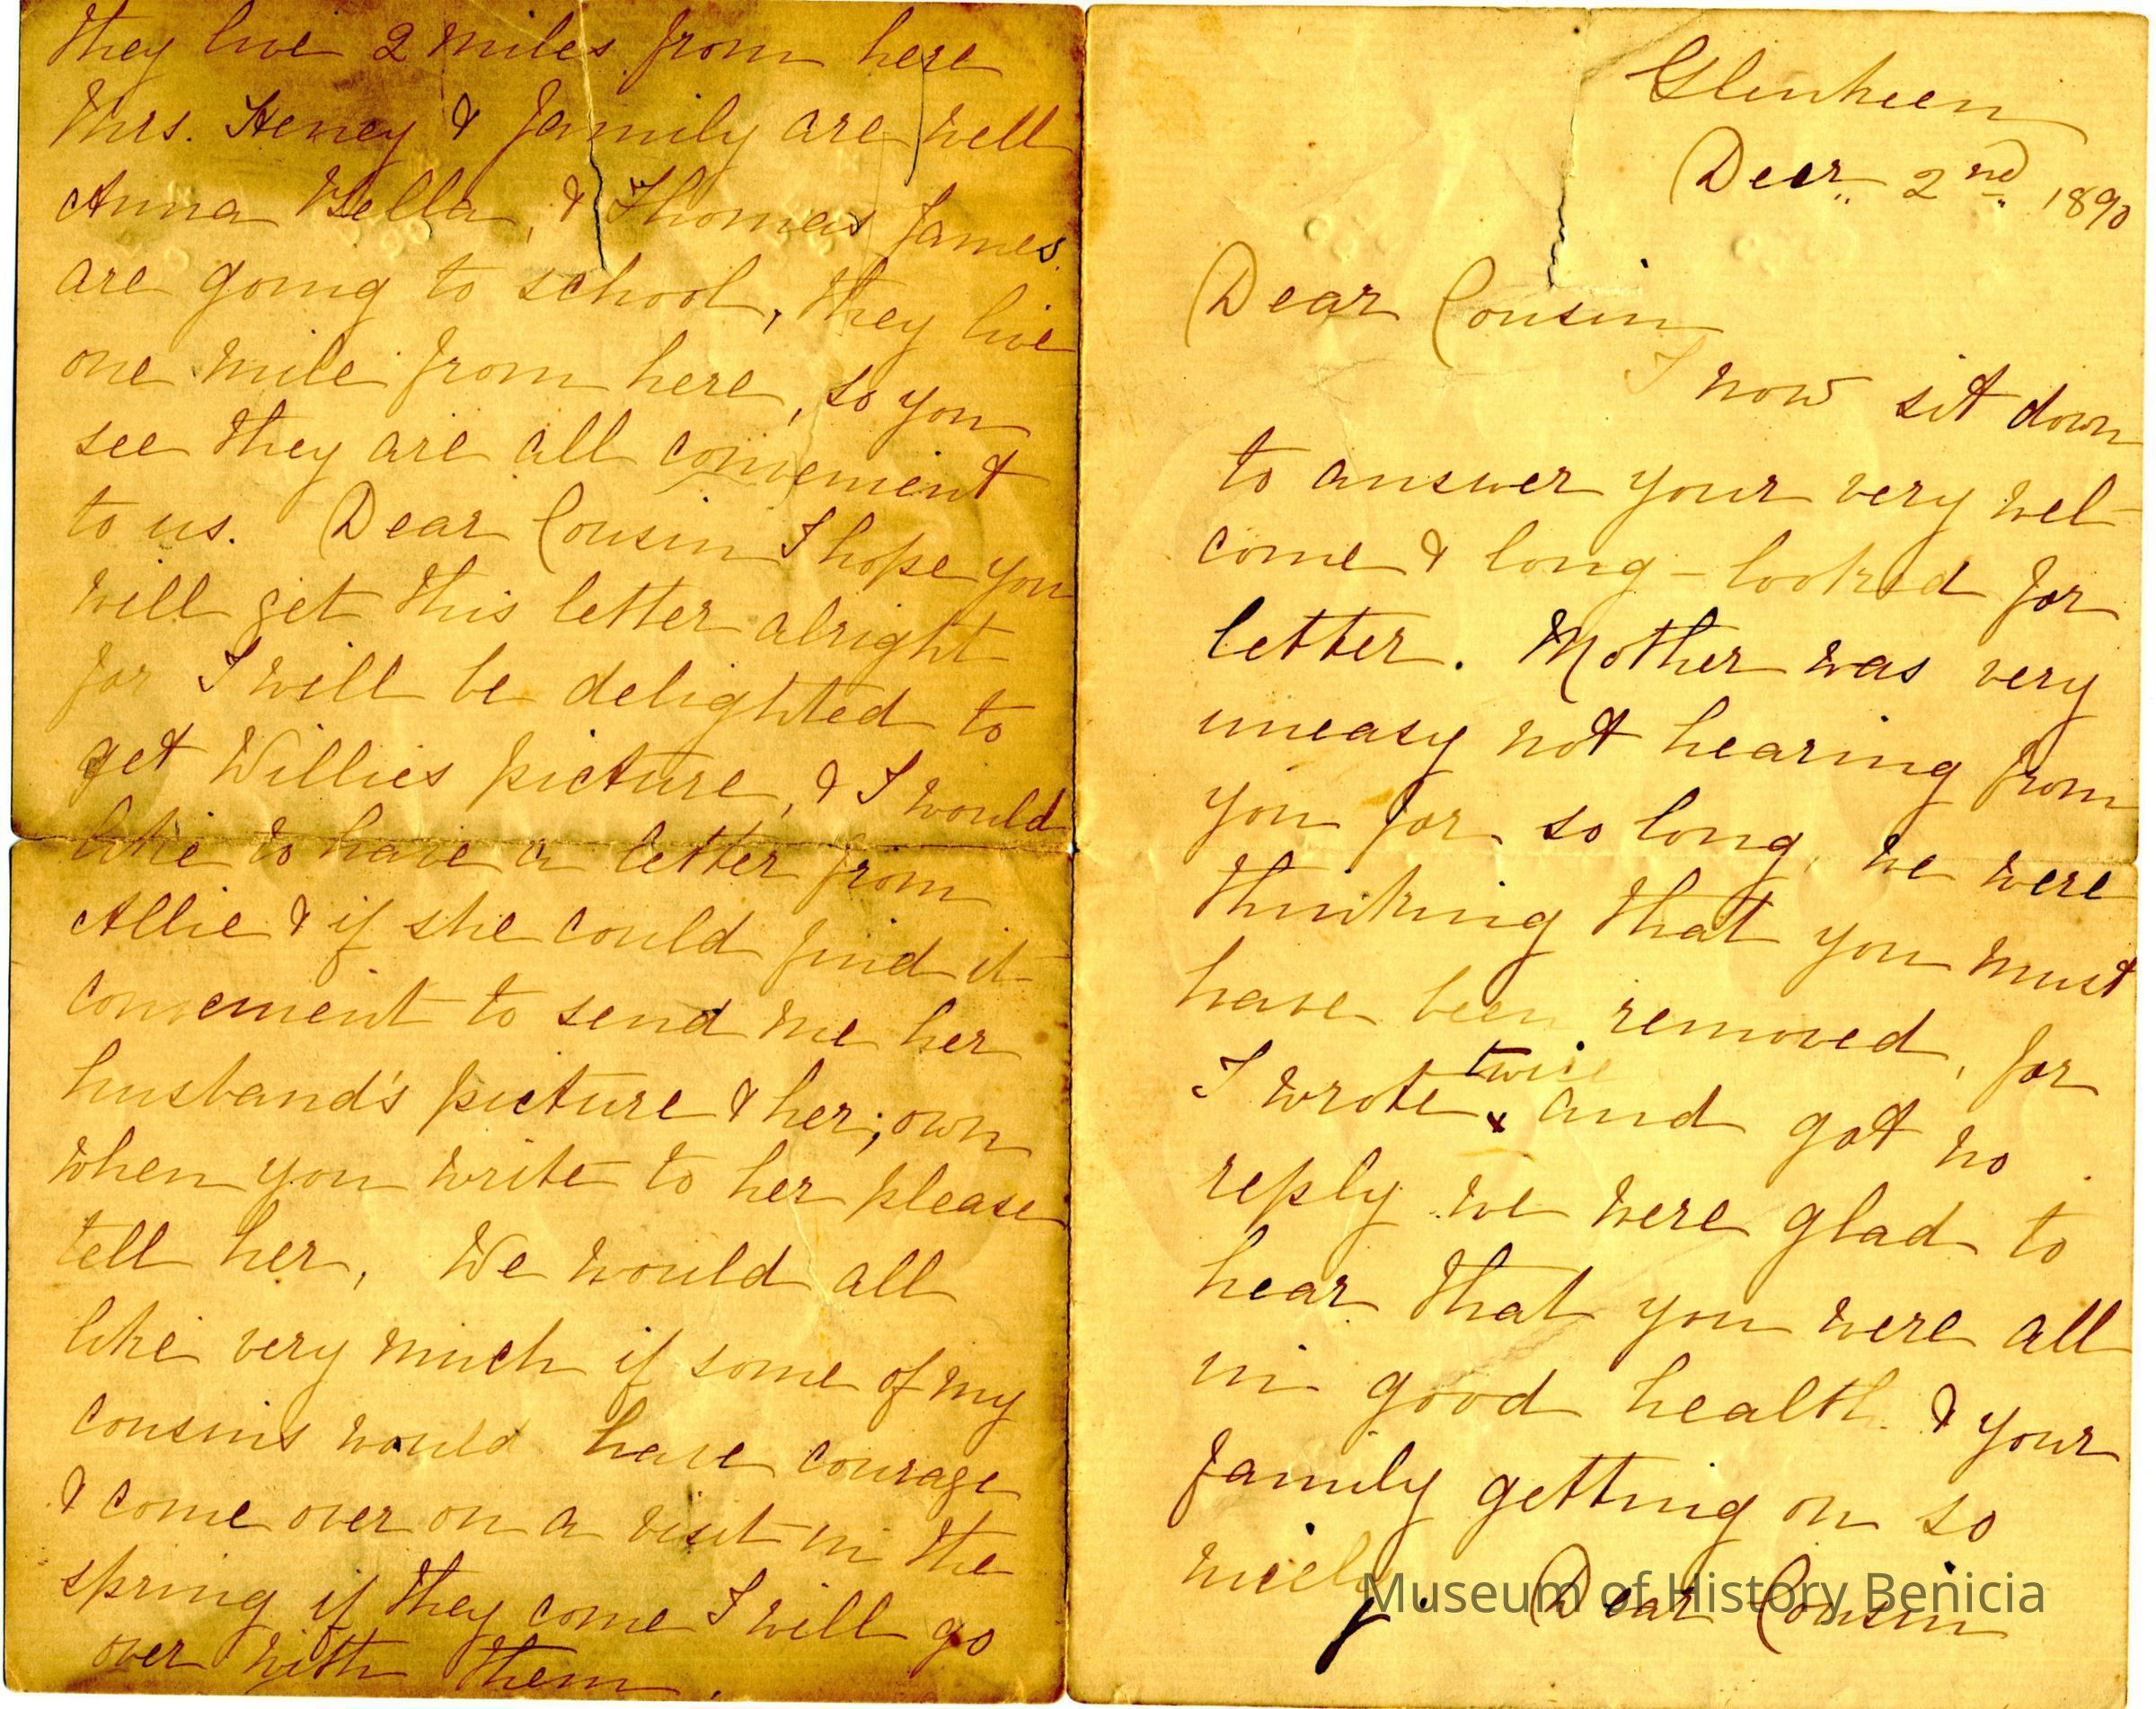 Glenkeen
Decr. 2nd 1890
Dear Cousin
I now sit down
to answer your very wel-
come & long-looked for
letter. Mother was very
uneasy not hearing from
you for so long, we were
thinking that you must
have been removed, for
I wrote twice and got no
reply we were glad to
hear that you were all
in good health & your
family getting on so
nicely. Dear Cousin
they live 2 miles from here
Mrs. Heney & family are well
Anna Bella, & Thomas James
are going to school, they live
one mile from here, so you
see they are all convenient
to us. Dear Cousin I hope you
will get this letter alright
for I will be delighted to
get Willies picture, & I would
like to have a letter from
Allie & if she could find it
convenient to send me her
husband's picture & her, own
when you write to her please
tell her, We would all
like very much if some of my
cousins would have courage
& come over on a visit in the
spring if they come I will go
over with them.
Museum of History Benicia